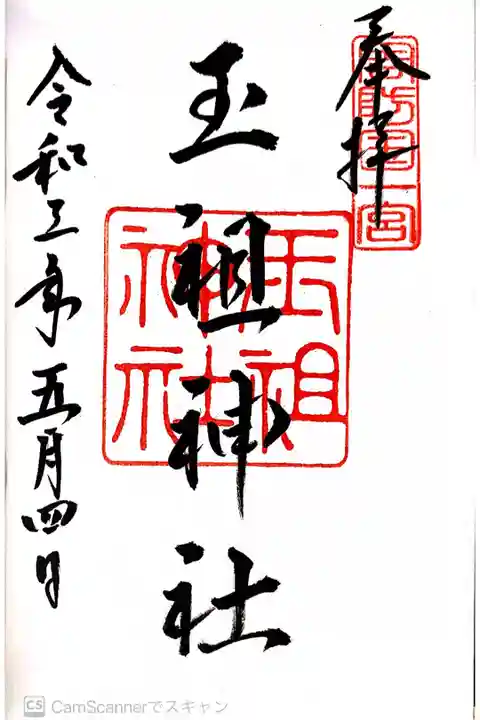 奉拝
周防国一宮
玉祖神社
玉祖神社
令和三年五月四日
CS CamScannerでスキャン